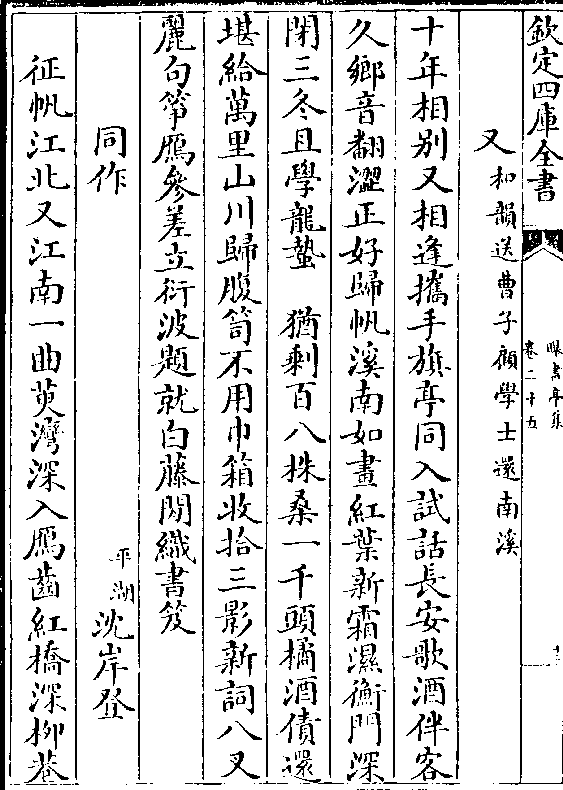 欽定四庫全書
曝書亭集
卷二十五
又和韻送曹子顧學士還南溪
十年相别又相逢攜手旗亭同入試話長安歌酒伴客
久鄉音翻澀正好歸帆溪南如畫紅葉新霜濕衡門深
閉三冬且學龍蟄　猶剩百八株桑一千頭橘酒債還
堪給萬里山川歸腹笥不用巾箱收拾三影新詞八叉
麗句箏鴈參差立衍波題就白藤閒織書笈
同作
平湖沈岸登
征帆江北又江南一曲萸灣深入鴈齒紅橋深柳巷